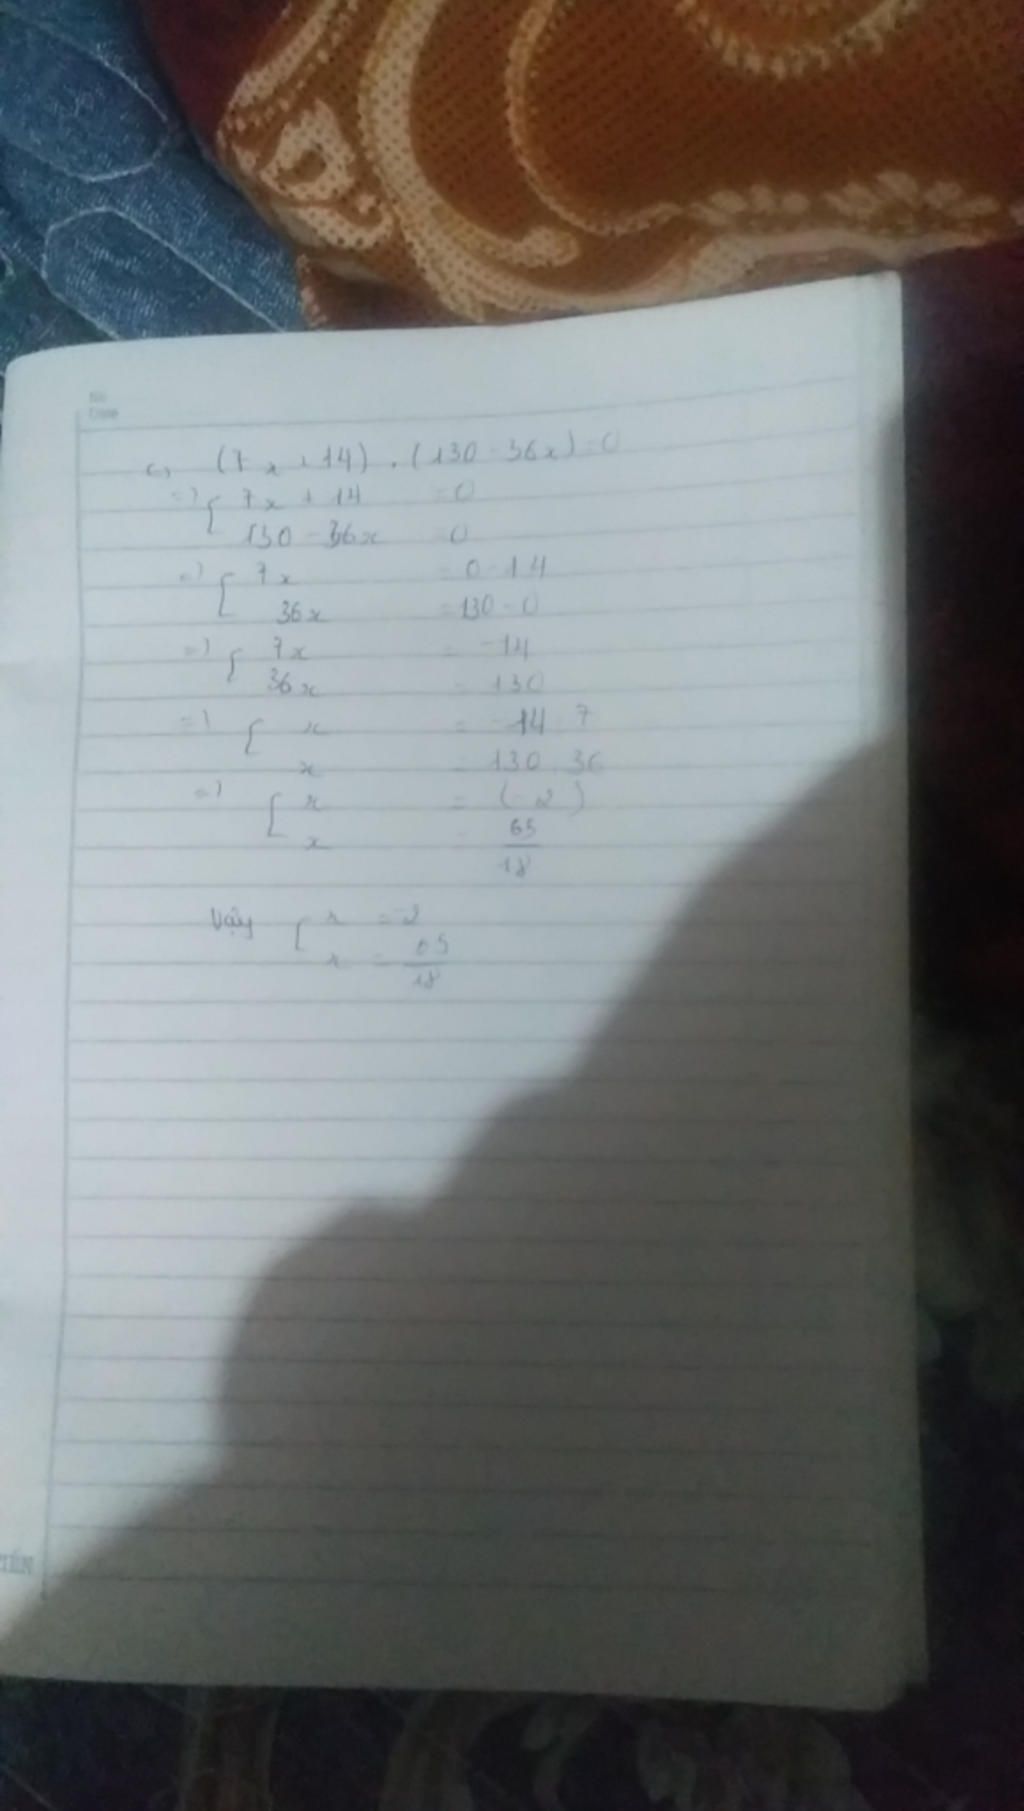 No
Date
c, (7x + 14) . (130 - 36x) = 0
=) [ 7x + 14 = 0
130 - 36x = 0
=) [ 7x = 0 - 14
36x = 130 - 0
=) [ 7x = -14
36x = 130
=) [ x = -14 : 7
x = 130 : 36
=) [ x = (-2)
x = 65/18
Vậy [ x = -2
x = 65/18